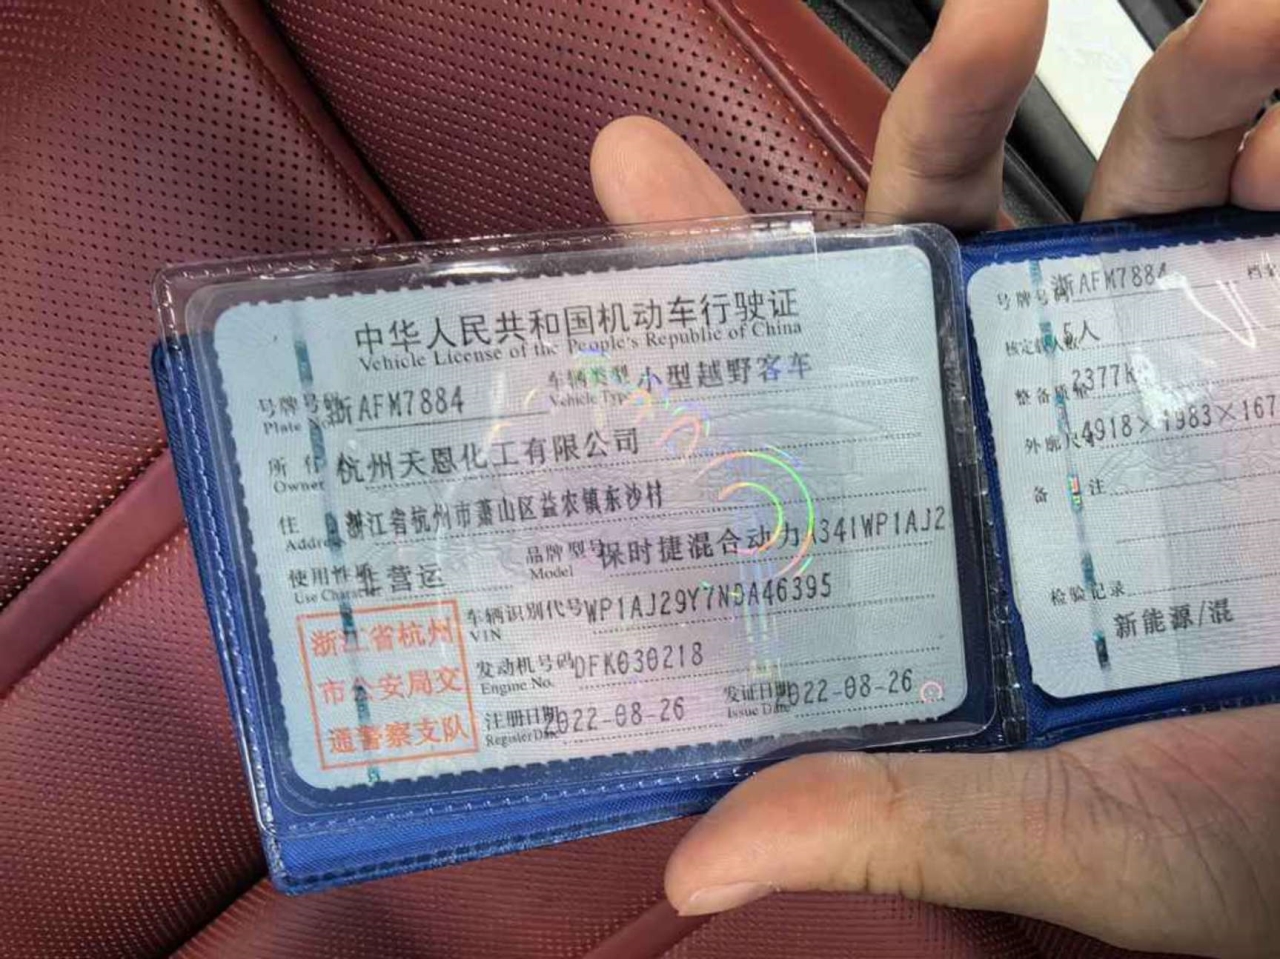 中华人民共和国机动车行驶证
Vehicle License of the People's Republic of China
号牌号码 浙AFM7884 车辆类型 小型越野客车
Plate No. Vehicle Type
所有人 杭州天恩化工有限公司
Owner
住 浙江省杭州市萧山区益农镇东沙村
Address
使用性质 非营运 品牌型号 保时捷混合动力 341WP1AJ2
Use Character Model
车辆识别代号 WP1AJ29Y7NDA46395
VIN
发动机号码 DFK030218
Engine No.
注册日期 2022-08-26 发证日期 2022-08-26
Register Date Issue Date
浙江省杭州
市公安局交
通警察支队
号牌号码 浙AFM7884 档案
核定载人数 5人
整备质量 2377k
外廓尺寸 4918×1983×167
备注
检验记录
新能源/混